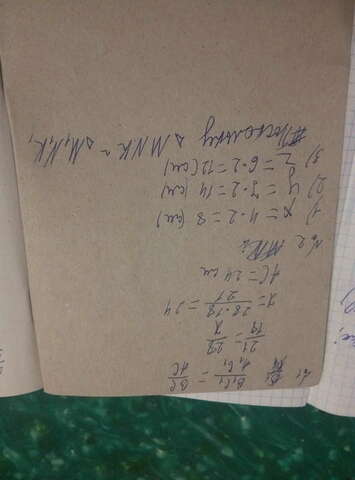 B₁C₁/A₁C₁ = BC/AC
21/18 = 28/x
x = 28·18/21 = 24
AC = 24 см
№2
1) x = 4·2 = 8 (см)
2) y = 7·2 = 14 (см)
3) z = 6·2 = 12 (см)
Поскольку △ MNK ~ △ M₁N₁K₁